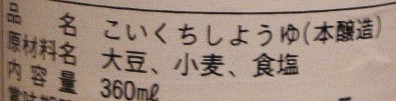 品名 こいくちしようゆ(本醸造)
原材料名 大豆、小麦、食塩
内容量 360mℓ